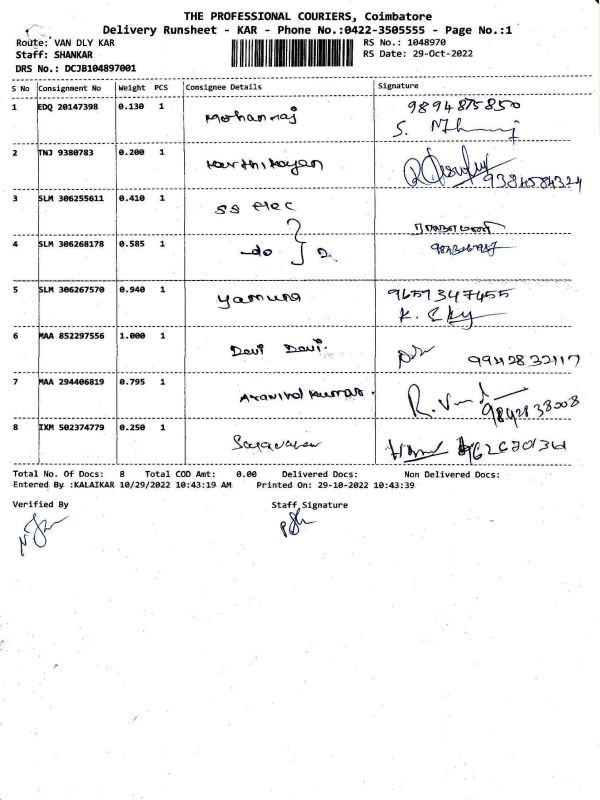 THE PROFESSIONAL COURIERS, Coimbatore
Delivery Runsheet - KAR - Phone No.:0422-3505555 - Page No.:1
Route: VAN DLY KAR RS No.: 1048970
Staff: SHANKAR RS Date: 29-Oct-2022
DRS No.: DCJB104897001
S No Consignment No Weight PCS Consignee Details Signature
1 EDQ 20147398 0.130 1 Mohanraj 9894875850
S.
2 TNJ 9380783 0.200 1 Karthikeyan 9384584324
3 SLM 306255611 0.410 1 SS elec
4 SLM 306268178 0.585 1 -do 2
5 SLM 306267570 0.940 1 Yamuna 9659347455
K.
6 MAA 852297556 1.000 1 Devi Devi. 9942832117
7 MAA 294406819 0.795 1 Aravind Kumar. R.
9842838008
8 IXM 502374779 0.250 1
Total No. Of Docs: 8 Total COD Amt: 0.00 Delivered Docs: Non Delivered Docs:
Entered By :KALAIKAR 10/29/2022 10:43:19 AM Printed On: 29-10-2022 10:43:39
Verified By Staff Signature